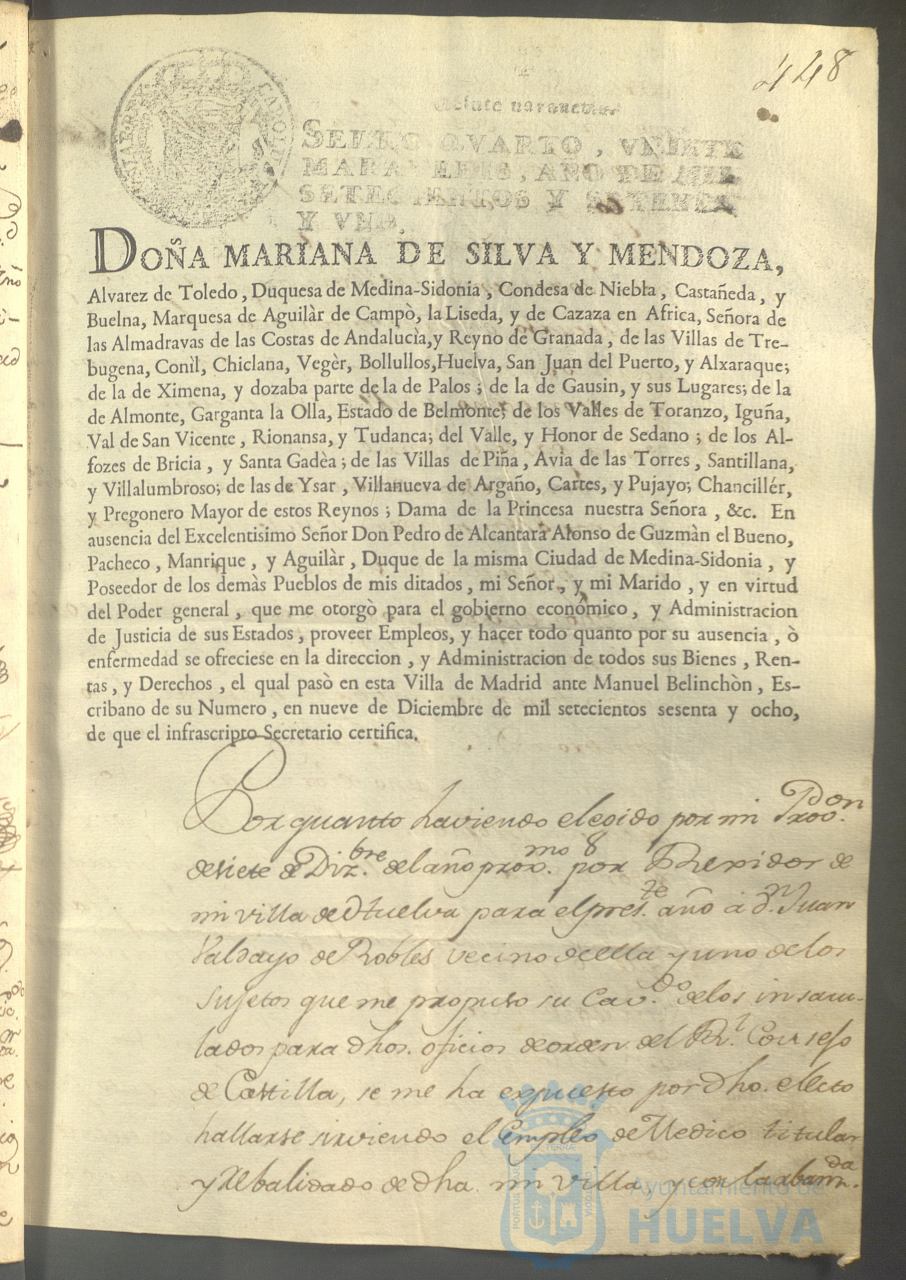 448
Veinte maravedis
SELLO QVARTO, VEINTE
MARAVEDIS, AÑO DE MIL
SETECIENTOS Y SETENTA
Y VNO.
DOÑA MARIANA DE SILVA Y MENDOZA,
Alvarez de Toledo, Duquesa de Medina-Sidonia, Condesa de Niebla, Castañeda, y
Buelna, Marquesa de Aguilàr de Campò, la Liseda, y de Cazaza en Africa, Señora de
las Almadravas de las Costas de Andalucìa, y Reyno de Granada, de las Villas de Tre-
bugena, Conìl, Chiclana, Vegèr, Bollullos, Huelva, San Juan del Puerto, y Alxaraque;
de la de Ximena, y dozaba parte de la de Palos; de la de Gausin, y sus Lugares; de la
de Almonte, Garganta la Olla, Estado de Belmonte; de los Valles de Toranzo, Iguña,
Val de San Vicente, Rionansa, y Tudanca; del Valle, y Honor de Sedano; de los Al-
fozes de Bricia, y Santa Gadèa; de las Villas de Piña, Avia de las Torres, Santillana,
y Villalumbroso; de las de Ysar, Villanueva de Argaño, Cartes, y Pujayo; Chancillér,
y Pregonero Mayor de estos Reynos; Dama de la Princesa nuestra Señora, &c. En
ausencia del Excelentisimo Señor Don Pedro de Alcantara Alonso de Guzmàn el Bueno,
Pacheco, Manrique, y Aguilàr, Duque de la misma Ciudad de Medina-Sidonia, y
Poseedor de los demàs Pueblos de mis ditados, mi Señor, y mi Marido, y en virtud
del Poder general, que me otorgò para el gobierno económico, y Administracion
de Justicia de sus Estados, proveer Empleos, y hacer todo quanto por su ausencia, ò
enfermedad se ofreciese en la direccion, y Administracion de todos sus Bienes, Ren-
tas, y Derechos, el qual pasò en esta Villa de Madrid ante Manuel Belinchòn, Es-
cribano de su Numero, en nueve de Diciembre de mil setecientos sesenta y ocho,
de que el infrascripto Secretario certifica.
Por quanto haviendo elegido por mi Prov.on
de siete de Diz.bre del año prox.mo por Rexidor de
mi villa de Huelva para el pres.te año à D.n Juan
de Robles vecino de ella y uno de los
sujetos que me propuso su Cav.do de los insacu-
lados para dhos. oficios de orden del R.l Consejo
de Castilla, se me ha expuesto por dho. electo
hallarse sirviendo el Empleo de Medico titular
y Rebalidado de dha. mi villa y con la
Ayuntamiento de
HUELVA